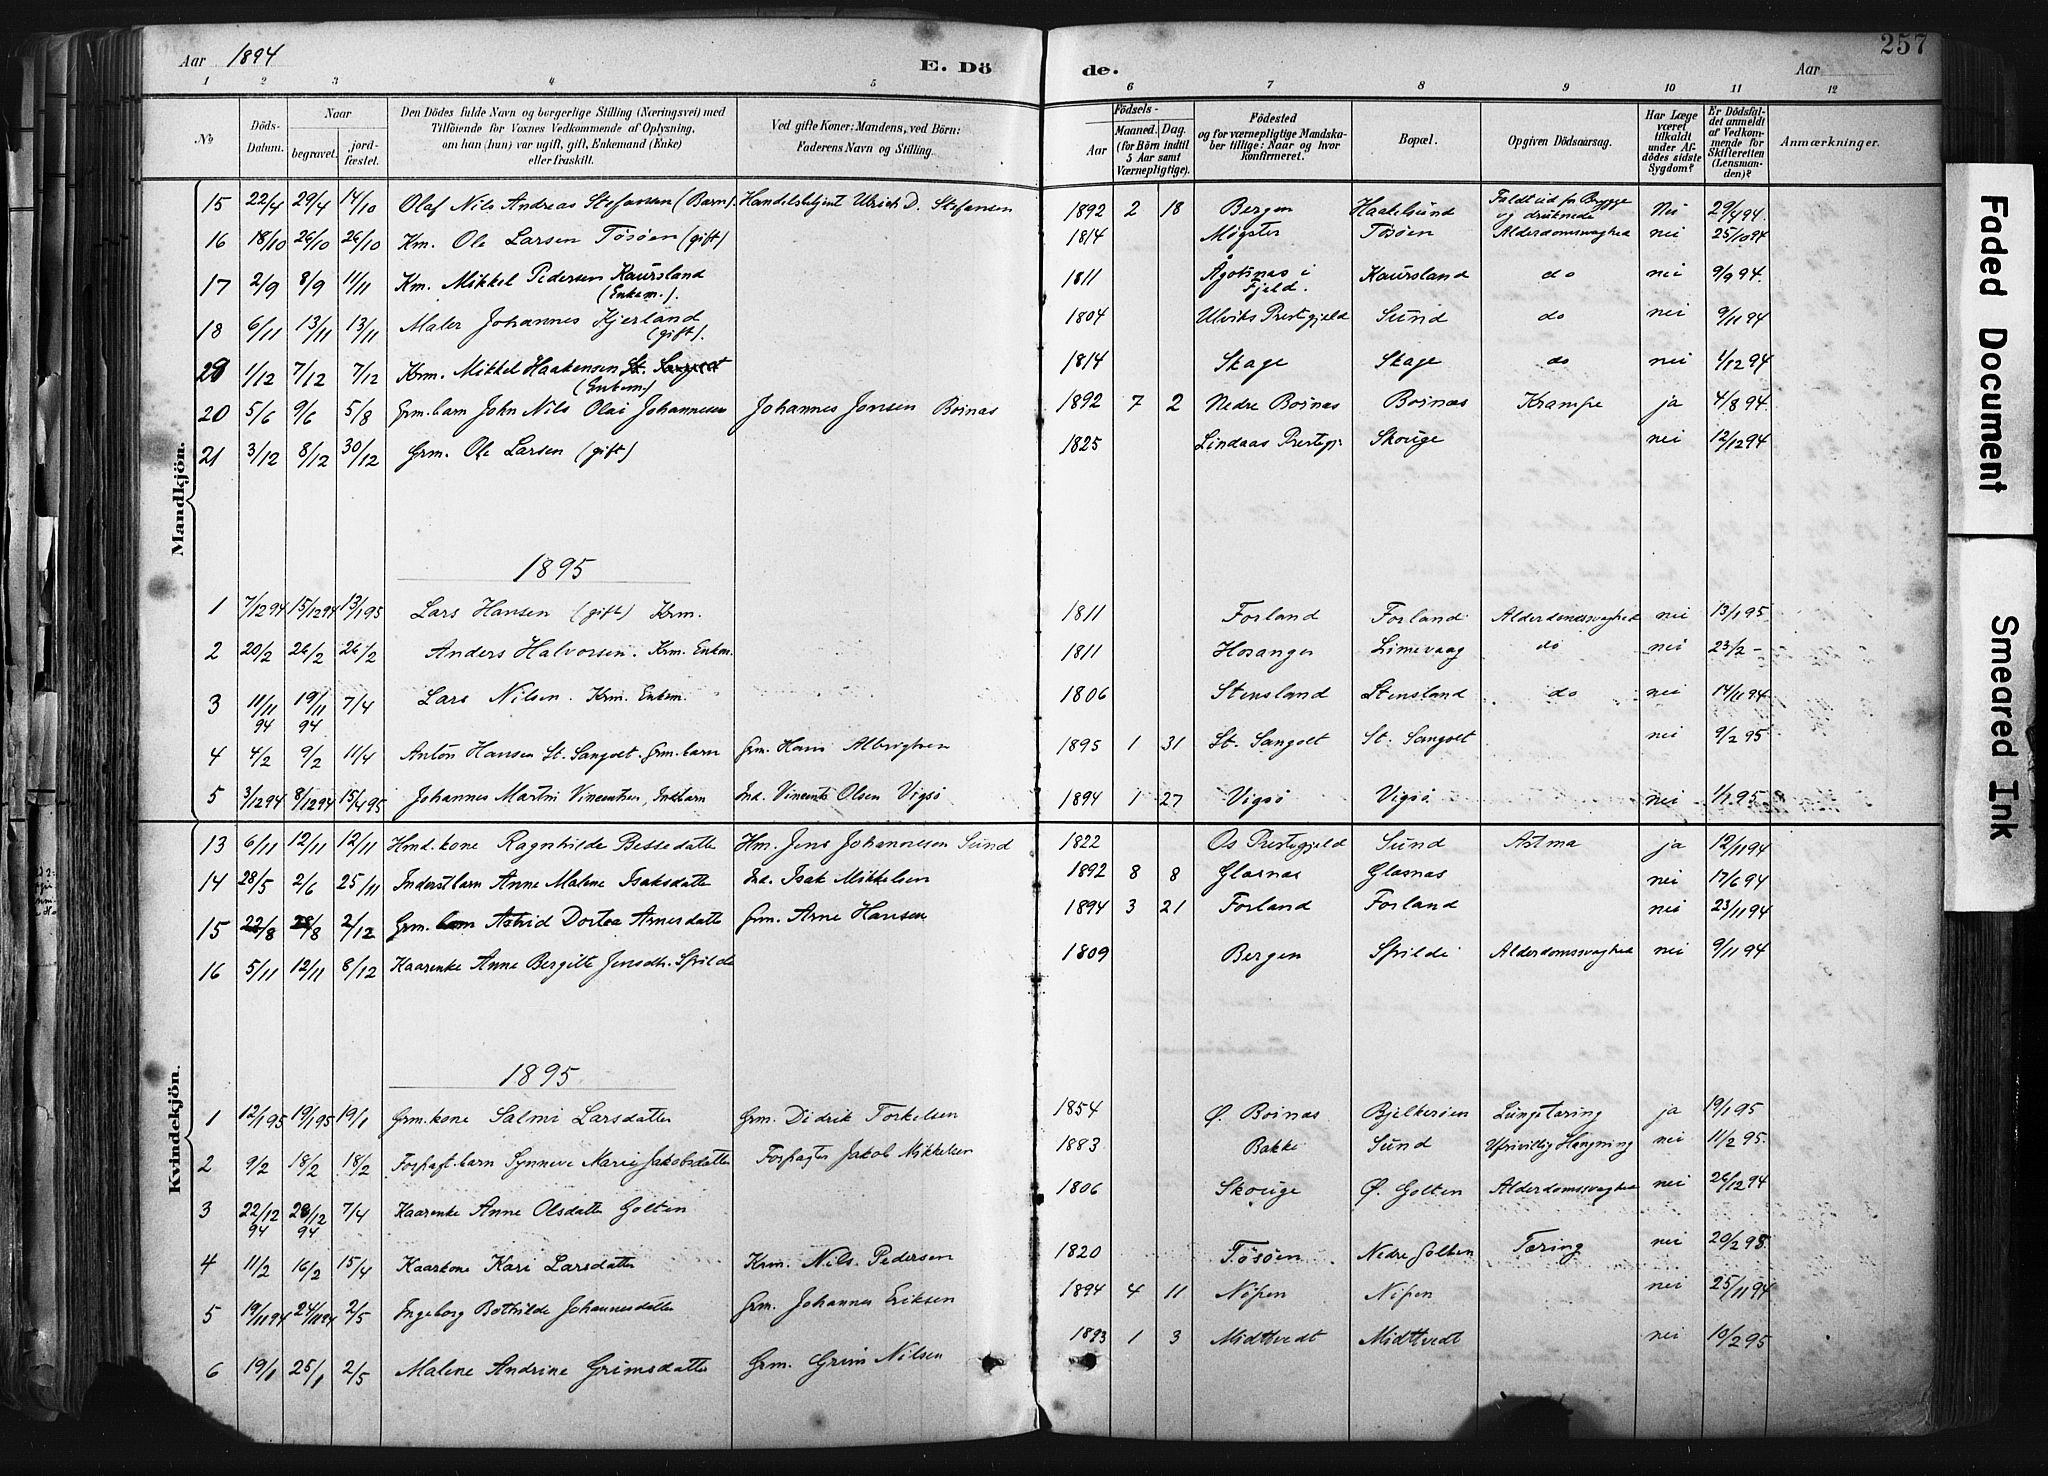 257
Aar 1894 E. Döde. Aar
1 2 3 4 5 6 7 8 9 10 11 12
№ Döds-Datum. Naar begravet. jordfæstet. Den Dödes fulde Navn og borgerlige Stilling (Næringsvei) med Tilföiende for Voxnes Vedkommende af Oplysning, om han (hun) var ugift, gift, Enkemand (Enke) eller fraskilt. Ved gifte Koner: Mandens, ved Börn: Faderens Navn og Stilling. Födsels- Aar Maaned. Dag. (for Börn indtil 5 Aar samt Værnepligtige). Födested og for værnepligtige Mandskaber tillige: Naar og hvor konfirmeret. Bopæl. Opgiven Dödsaarsag. Har Læge været tilkaldt under Afdödes sidste Sygdom? Er Dödsfaldet anmeldt af Vedkommende for Skifteretten (Lensmanden)? Anmærkninger.
Mandkjön.
15 22/4 29/4 14/10 Olaf Nils Andreas Stefansen (Barn). Handelsbetjent Ulrich D. Stefansen 1892 2 18 Bergen Haakelsund Faldt ud fr Brygge og druknede Nei 29/4 94.
16 18/10 26/10 26/10 Km. Ole Larsen Tösöen (gift) 1814 Mögster Tösöen Alderdomssvaghed nei 25/10 94
17 2/9 8/9 11/11 Km. Mikkel Pedersen Kaursland (Enkem.). 1811 Ågotnes i Fjeld. Kaursland do nei 9/9 94.
18 6/11 13/11 13/11 Maler Johannes Kjerland (gift). 1804 Ulviks Prestegjeld Sund do nei 9/11 94
29 1/12 7/12 7/12 Krm. Mikkel Haakensen (Enkem.) 1814 Skage Skage do nei 1/12 94
20 5/6 9/6 5/8 Grm. barn John Nils Olai Johannesen Johannes Jonsen Boinæs 1892 7 2 Nedre Boinæs Boinæs Krampe ja 4/8 94.
21 3/12 8/12 30/12 Grm. Ole Larsen (gift) 1825 Lindaas Prestegj. Skouge nei 12/12 94
1895
1 7/12 94 15/12 94 13/1 95 Lars Hansen (gift) Krm. 1811 Forland Forland Alderdomssvaghed nei 13/1 95.
2 20/2 26/2 26/2 Anders Halvorsen. Krm. Enkm. 1811 Hosanger Limevaag do nei 23/2 -
3 11/11 94 19/11 94 7/4 Lars Nilsen. Krm. Enkem. 1806 Stensland Stensland do nei 14/11 94
4 4/2 9/2 11/4 Anton Hansen St. Sangolt. Grm. barn Grm. Hans Albrigtsen 1895 1 31 St. Sangolt St. Sangolt nei 9/2 95.
5 3/12 94 8/12 94 15/4 95 Johannes Martin Vincentsen, Indbarn Ind. Vincents Olsen Vigsö 1894 1 27 Vigsö Vigsö nei 1/1 95.
Kvindekjön.
13 6/11 12/11 12/11 Hmd. kone Ragnhilde Bessedatter Hm. Jens Johannesen Sund 1822 Os Prestegjeld Sund Astma ja 12/11 94
14 28/5 2/6 25/11 Inderstbarn Anne Malene Isaksdatter Ind. Isak Mikkelsen 1892 8 8 Glæsnæs Glæsnæs nei 17/6 94
15 22/8 28/8 2/12 Grm. barn Astrid Dortea Arnesdatter Grm. Arne Hansen 1894 3 21 Forland Forland nei 23/11 94
16 5/11 12/11 8/12 Kaarenke Anne Bergitte Jensdtr. Spilde 1809 Bergen Spilde Alderdomssvaghed nei 9/11 94
1895
1 12/1 95 19/1 95 19/1 Grm. kone Salmi Larsdatter Grm. Didrik Torkelsen 1854 Ö. Boinæs Bjelkeröen Lungetæring ja 19/1 95
2 9/2 18/2 18/2 Forpagt. barn Synneve Marie Jakobsdatter Forpagter Jakob Mikkelsen 1883 Bakke Sund Ufrivillig Hængning nei 11/2 95.
3 22/12 94 28/12 94 7/4 Kaarenke Anne Olsdatter Golten 1806 Skouge Ö. Golten Alderdomssvaghed nei 26/12 94
4 11/2 16/2 15/4 Kaarkone Kari Larsdatter Krm. Nils Pedersen 1820 Tösöen Nedre Golten Tæring nei 20/2 95.
5 19/11 94 24/11 94 2/5 Ingeborg Bothilde Johannesdatter Grm. Johannes Eriksen 1894 4 11 Nipen Nipen nei 25/11 94
6 19/1 25/1 2/5 Malene Andrine Grimsdatter Grm. Grim Nilsen 1893 1 3 Midttvedt Midttvedt nei 10/2 95
Faded Document
Smeared Ink